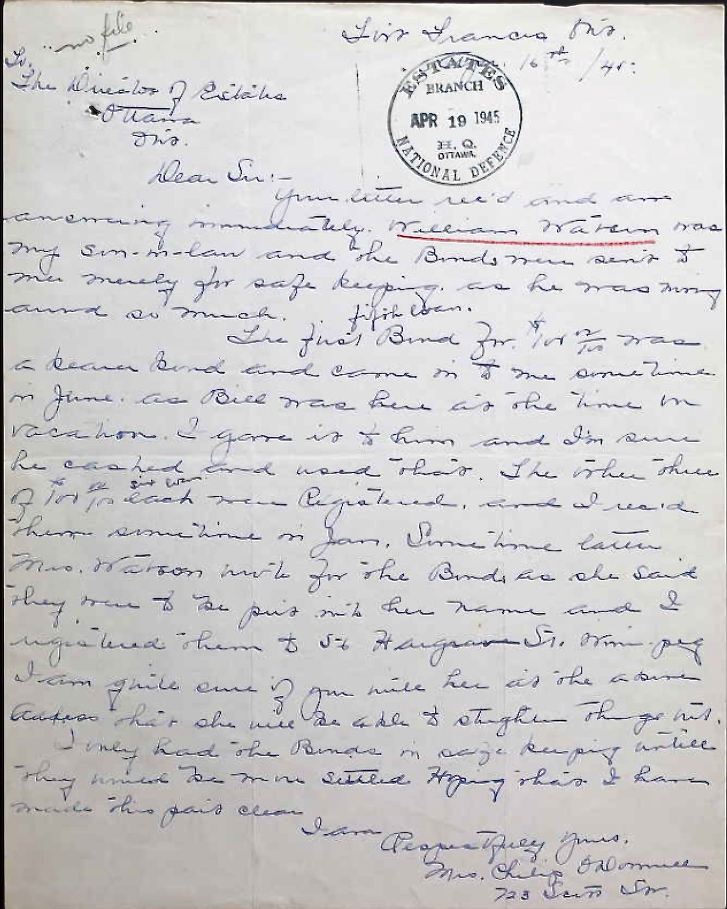 "no file"
Fort Frances Ont.
Apr. 16th /45.
ESTATES
BRANCH
APR 19 1945
H. Q.
OTTAWA.
NATIONAL DEFENCE
To.
The Director of Estates
Ottawa
Ont.
Dear Sir:-
Your letter rec'd and am
answering immediately. William Watson was
my son-in-law and the Bonds were sent to
me merely for safe keeping. as he was moving
around so much. fifth loan.
The first Bond for $100 00/100 was
a bearer bond and came in to me sometime
in June. as Bill was here at the time on
vacation. I gave it to him and I'm sure
he cashed and used that. The other three
of $100 00/100 each were Registered. and I rec'd
six loan.
them sometime in Jan. Sometime later
Mrs. Watson wrote for the Bonds as she said
they were to be put into her name and I
registered them to 56 Hargrave St. Winnipeg
I am quite sure if you write her at the above
address that she will be able to straighten things out.
I only had the Bonds in safe keeping untill
they would be more settled Hoping that I have
made this part clear
I am
Respectfully Yours.
Mrs. Philip O'Donnell
723 Scott St.